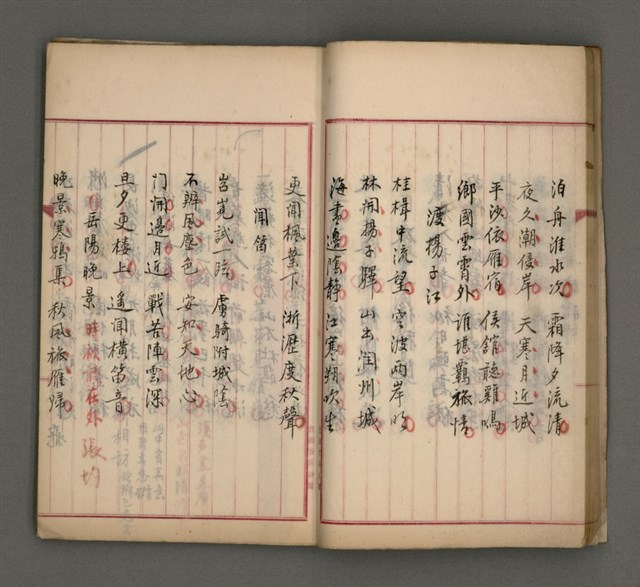 泊舟淮水次 霜降夕流清
夜久潮侵岸 天寒月近城
平沙依雁宿 候館聽雞鳴
鄉國雲霄外 誰堪羈旅情
渡揚子江
桂楫中流望 空波兩岸明
林開揚子驛 山出潤州城
海盡邊陰靜 江寒朔吹生
更聞楓葉下 淅瀝度秋聲
聞笛
岧嶤試一臨 虜騎附城陰
不辨風塵色 安知天地心
門開邊月近 戰苦陣雲深
旦夕更樓上 遙聞橫笛音
岳陽晚景 張均
晚景寒鴉集 秋風旅雁歸